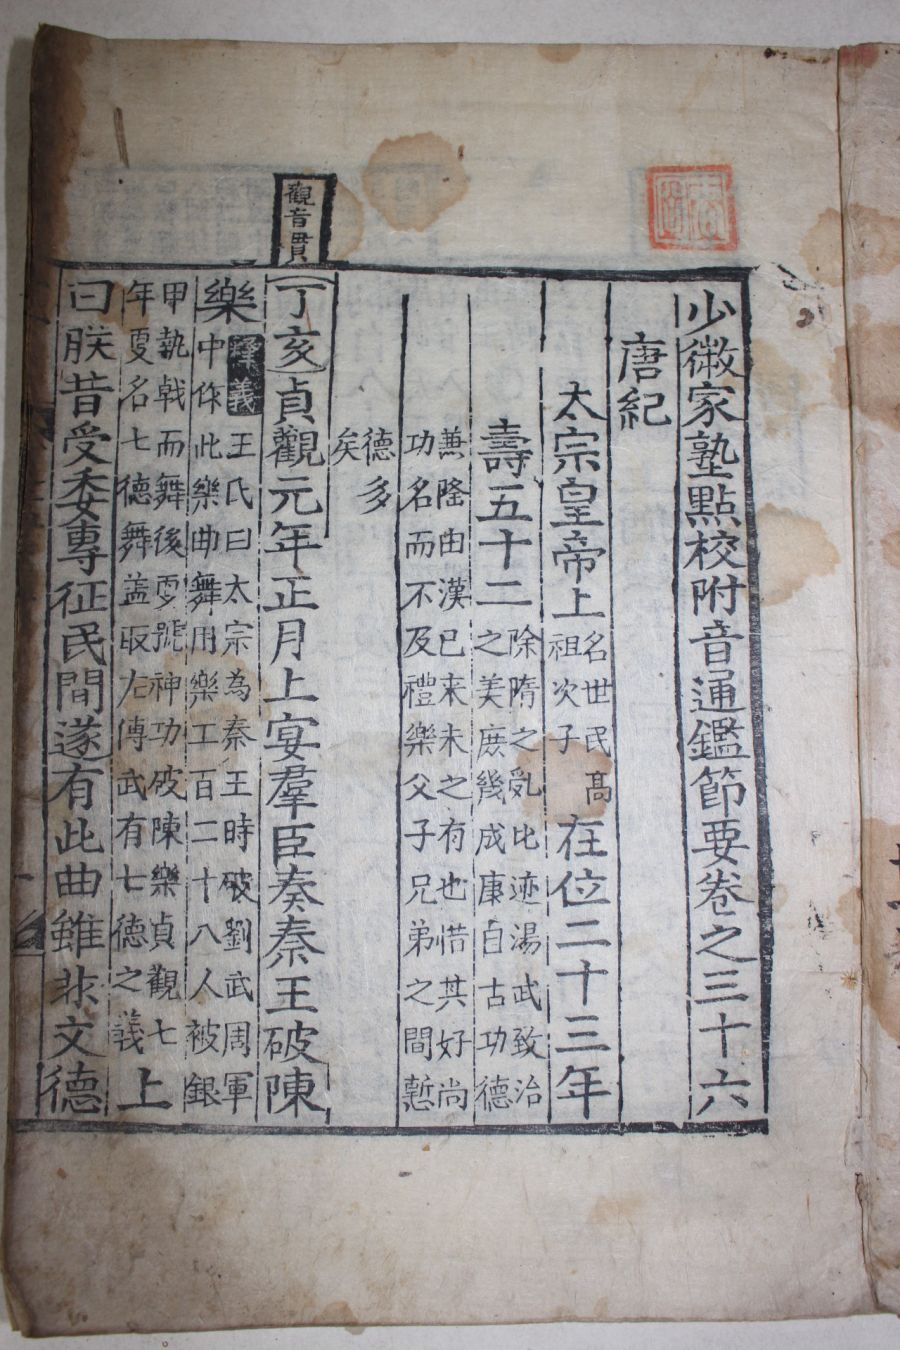 少微家塾點校附音通鑑節要卷之三十六
唐紀
太宗皇帝上
名世民高
祖次子
在位二十三年
壽五十二
除隋之亂比迹湯武致治
之美庶幾成康自古功德
兼隆由漢已來未之有也惜其好尚
功名而不及禮樂父子兄弟之間慙
德多
矣
觀音貫
丁亥貞觀元年正月上宴羣臣奏秦王破陳
樂
釋義
王氏曰太宗為秦王時破劉武周軍
中作此樂曲舞用樂工百二十八人被銀
甲執戟而舞後更號神功破陳樂貞觀七
年更名七德舞盖取左傳武有七德之義
上
曰朕昔受委專征民間遂有此曲雖非文德